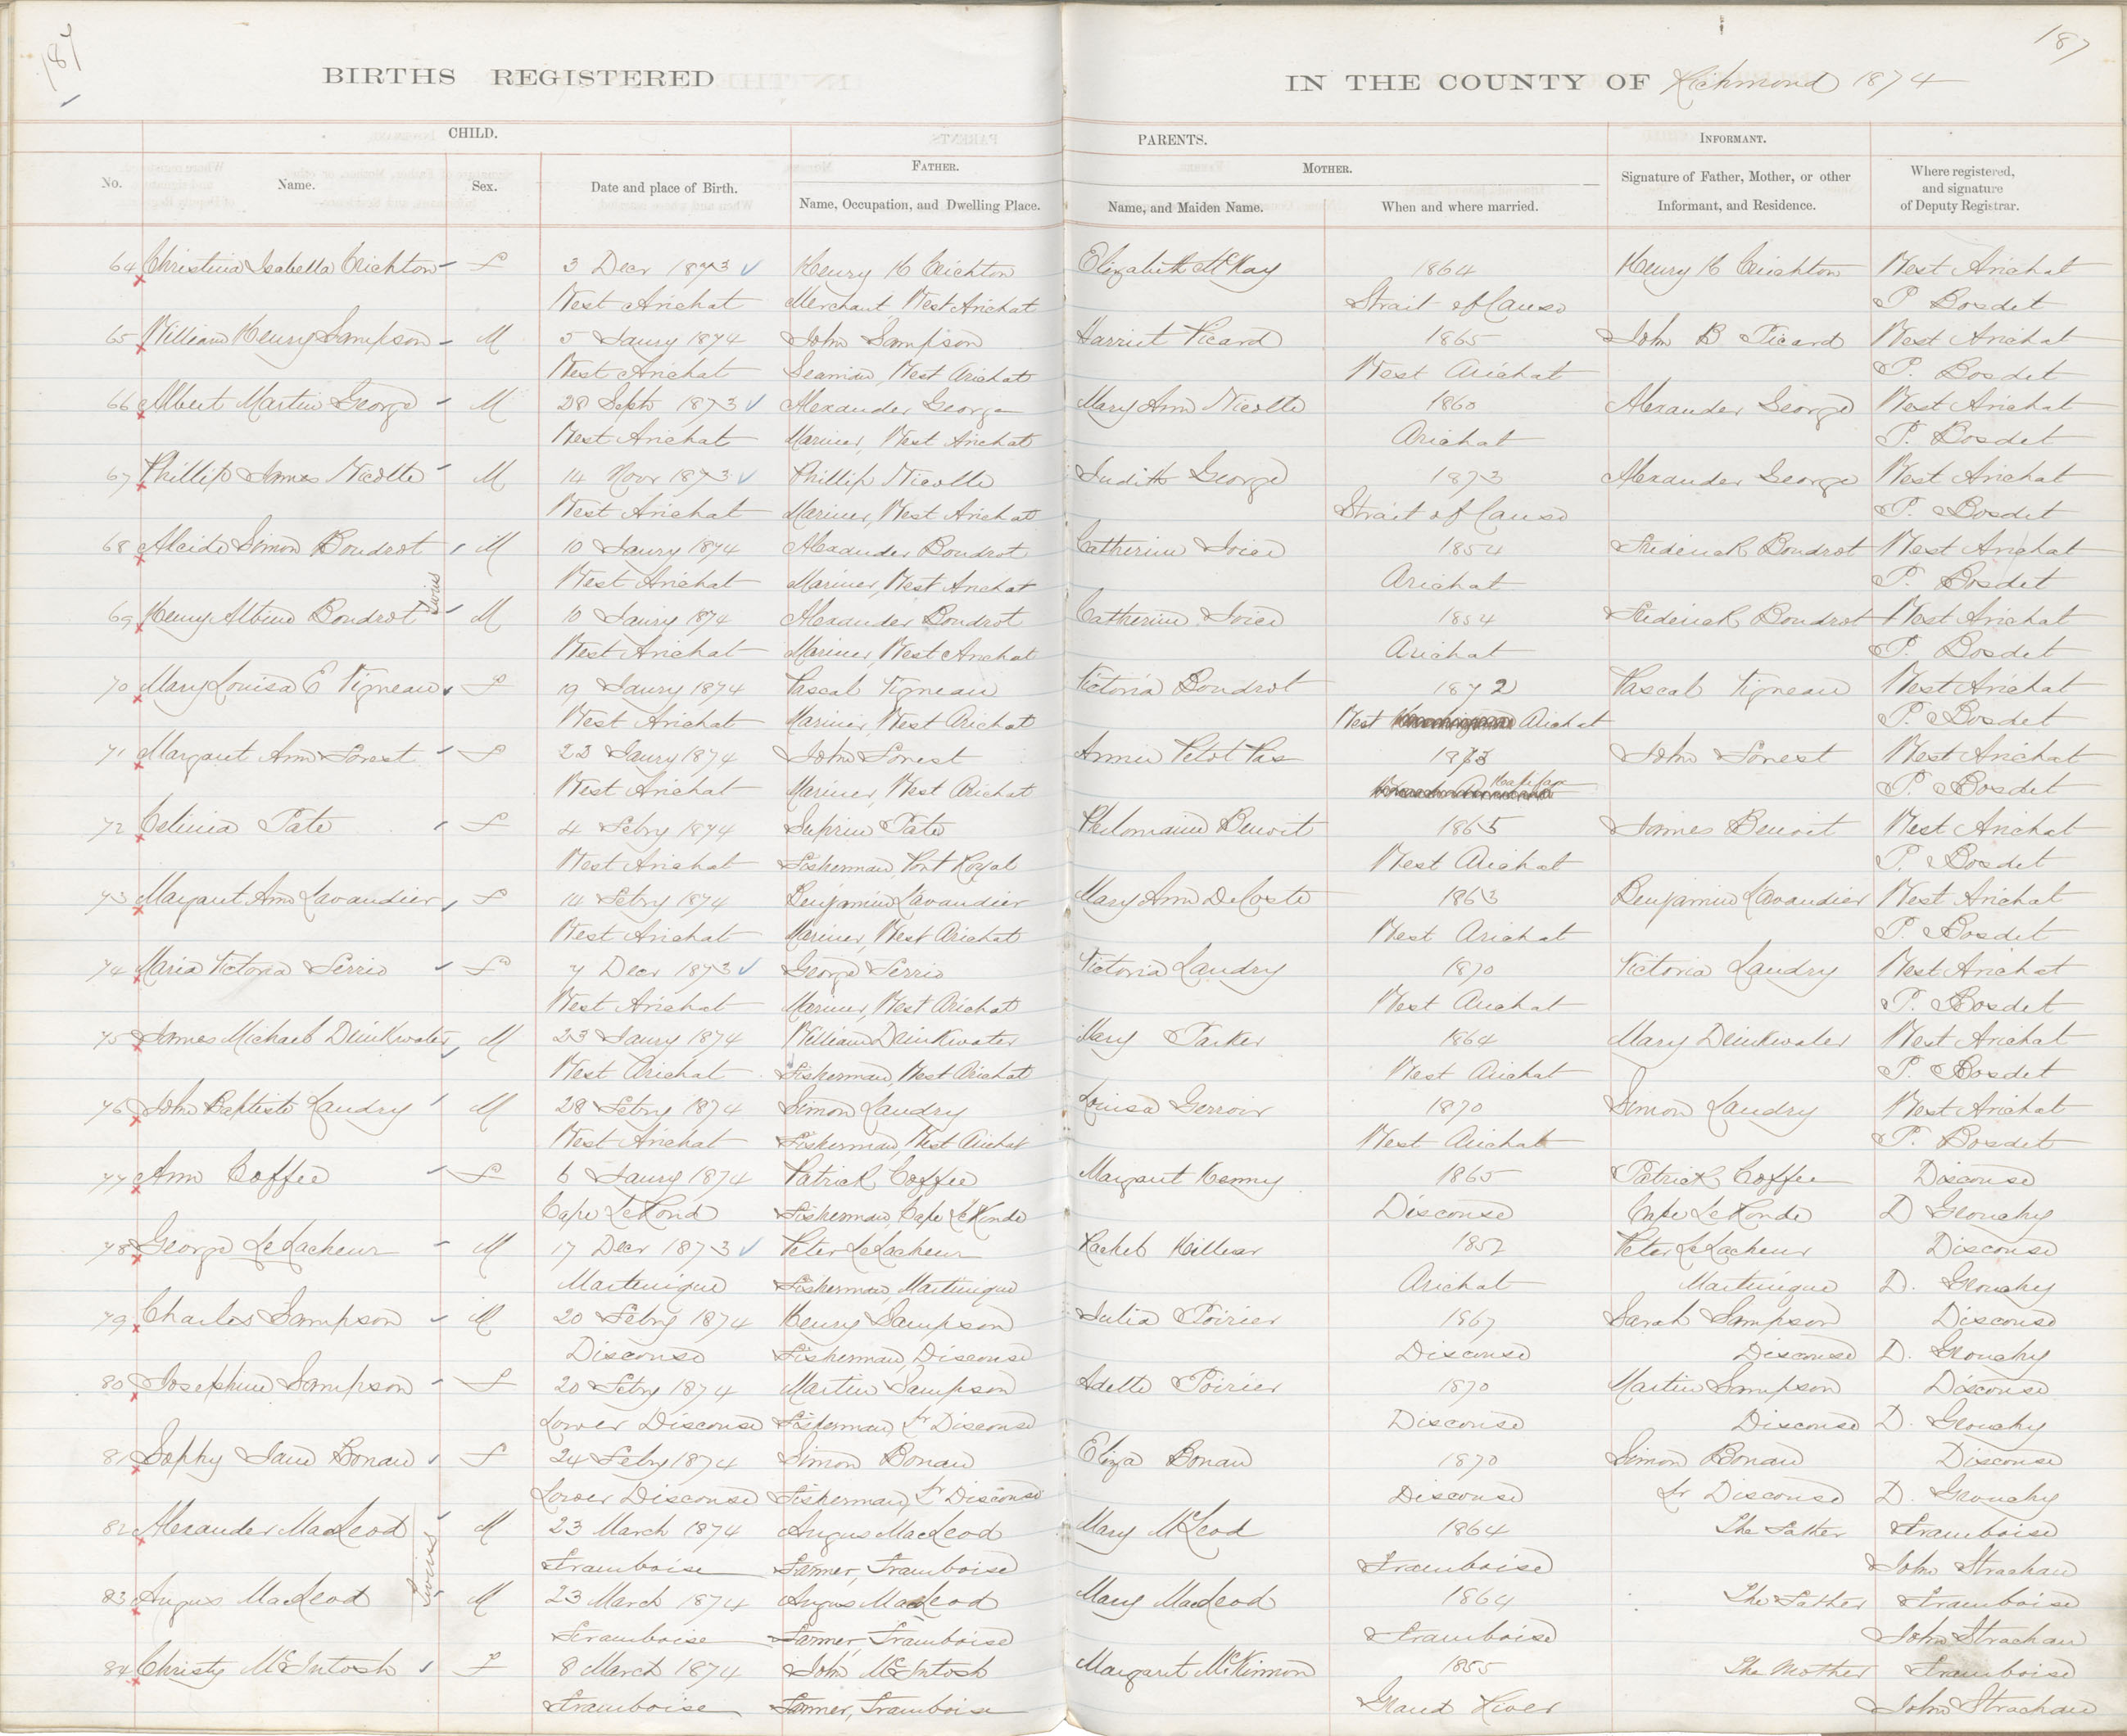 187 187
BIRTHS REGISTERED IN THE COUNTY OF Richmond 1874
CHILD. PARENTS. INFORMANT.
No. Name. Sex. Date and place of Birth. FATHER. Name, Occupation, and Dwelling Place. MOTHER. Name, and Maiden Name. When and where married. Signature of Father, Mother, or other Informant, and Residence. Where registered, and signature of Deputy Registrar.
64 Christina Isabella Crichton F 3 Decr 1873 Henry H Crichton Elizabeth McKay 1864 Henry H Crichton West Arichat
West Arichat Merchant, West Arichat Strait of Canso P Bosdet
65 William Henry Sampson M 5 Jaury 1874 John Sampson Harriet Picard 1865 John B Picard West Arichat
West Arichat Seaman, West Arichat West Arichat P. Bosdet
66 Albert Martin George M 28 Septr 1873 Alexander George Mary Ann Nicolle 1860 Alexander George West Arichat
West Arichat Mariner, West Arichat Arichat P. Bosdet
67 Phillip James Nicolle M 14 Novr 1873 Phillip Nicolle Judith George 1873 Alexander George West Arichat
West Arichat Mariner, West Arichat Strait of Canso P. Bosdet
68 Alcide Simon Boudrot M 10 Jaury 1874 Alexander Boudrot Catherine Joice 1854 Frederick Boudrot West Arichat
Twins West Arichat Mariner, West Arichat Arichat P. Bosdet
69 Henry Albine Boudrot M 10 Jaury 1874 Alexander Boudrot Catherine Joice 1854 Frederick Boudrot West Arichat
West Arichat Mariner, West Arichat Arichat P. Bosdet
70 Mary Louisa E Vigneau F 19 Jaury 1874 Pascal Vigneau Victoria Boudrot 1872 Pascal Vigneau West Arichat
West Arichat Mariner, West Arichat West Arichat P. Bosdet
71 Margaret Ann Forest F 23 Jaury 1874 John Forest Annie Petit Pas 1873 John Forest West Arichat
West Arichat Mariner, West Arichat P. Bosdet
72 Celinia Pate F 4 Febry 1874 Suprin Pate Philomaine Benoit 1865 James Benoit West Arichat
West Arichat Fisherman, Port Royal West Arichat P. Bosdet
73 Margaret Ann Lavandier F 14 Febry 1874 Benjamin Lavandier Mary Ann DeCoste 1863 Benjamin Lavandier West Arichat
West Arichat Mariner, West Arichat West Arichat P. Bosdet
74 Maria Victoria Ferrio F 7 Decr 1873 George Ferrio Victoria Landry 1870 Victoria Landry West Arichat
West Arichat Mariner, West Arichat West Arichat P. Bosdet
75 James Michael Drinkwater M 23 Jaury 1874 William Drinkwater Mary Parker 1864 Mary Drinkwater West Arichat
West Arichat Fisherman, West Arichat West Arichat P. Bosdet
76 John Baptiste Landry M 28 Febry 1874 Simon Landry Louisa Gerroir 1870 Simon Landry West Arichat
West Arichat Fisherman, West Arichat West Arichat P. Bosdet
77 Ann Coffee F 6 Jaury 1874 Patrick Coffee Margaret Kenny 1865 Patrick Coffee Discouse
Cape LeRond Fisherman, Cape LeRonde Discouse Cape LeRonde D Grouchy
78 George LeLacheur M 17 Decr 1873 Peter LeLacheur Rachel Hillier 1852 Peter LeLacheur Discouse
Martinique Fisherman, Martinique Arichat Martinique D. Grouchy
79 Charles Sampson M 20 Febry 1874 Henry Sampson Julia Poirier 1867 Sarah Sampson Discouse
Discouse Fisherman, Discouse Discouse Discouse D. Grouchy
80 Josephine Sampson F 20 Febry 1874 Martin Sampson Adelle Poirier 1870 Martin Sampson Discouse
Lower Discouse Fisherman, Lr Discouse Discouse Discouse D. Grouchy
81 Sophy Jane Bonau F 24 Febry 1874 Simon Bonau Eliza Bonau 1870 Simon Bonau Discouse
Lower Discouse Fisherman, Lr Discouse Discouse Lr Discouse D. Grouchy
82 Alexander MacLeod M 23 March 1874 Angus MacLeod Mary McLeod 1864 The Father Framboise
Twins Framboise Farmer, Framboise Framboise John Strachan
83 Angus MacLeod M 23 March 1874 Angus MacLeod Mary MacLeod 1864 The Father Framboise
Framboise Farmer, Framboise Framboise John Strachan
84 Christy McIntosh F 8 March 1874 John McIntosh Margaret McKinnon 1855 The Mother Framboise
Framboise Farmer, Framboise Grand River John Strachan